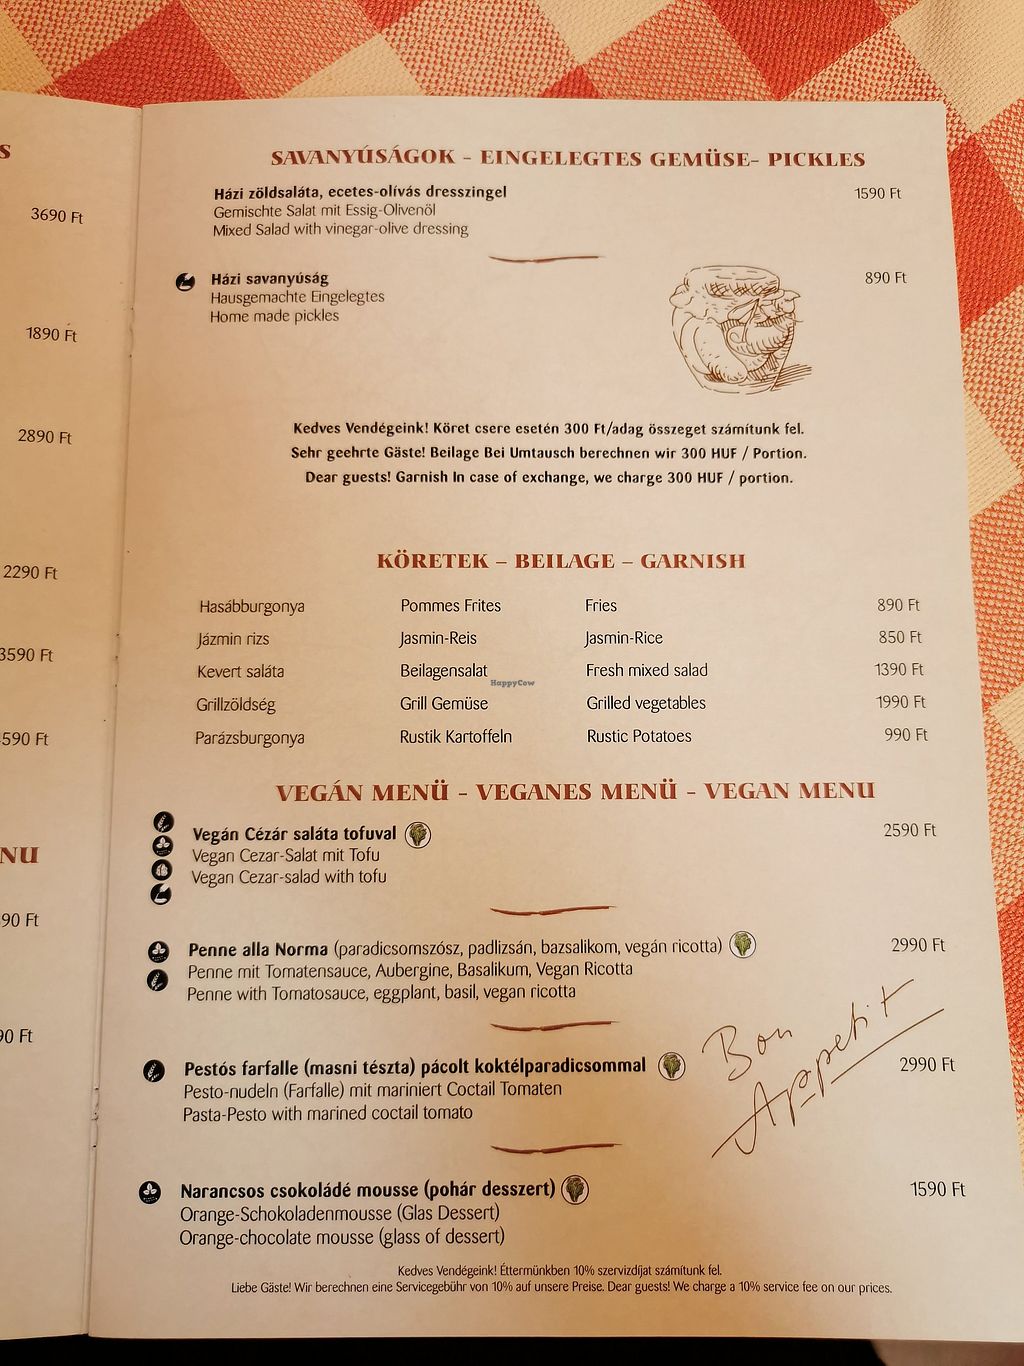 S
3690 Ft
1890 Ft
2890 Ft
2290 Ft
3590 Ft
590 Ft
NU
90 Ft
90 Ft
SAVANYÚSÁGOK - EINGELEGTES GEMÜSE- PICKLES
Házi zöldsaláta, ecetes-olívás dresszingel 1590 Ft
Gemischte Salat mit Essig-Olivenöl
Mixed Salad with vinegar-olive dressing
Házi savanyúság 890 Ft
Hausgemachte Eingelegtes
Home made pickles
Kedves Vendégeink! Köret csere esetén 300 Ft/adag összeget számítunk fel.
Sehr geehrte Gäste! Beilage Bei Umtausch berechnen wir 300 HUF / Portion.
Dear guests! Garnish In case of exchange, we charge 300 HUF / portion.
KÖRETEK – BEILAGE – GARNISH
Hasábburgonya Pommes Frites Fries 890 Ft
Jázmin rizs Jasmin-Reis Jasmin-Rice 850 Ft
Kevert saláta Beilagensalat Fresh mixed salad 1390 Ft
HappyCow
Grillzöldség Grill Gemüse Grilled vegetables 1990 Ft
Parázsburgonya Rustik Kartoffeln Rustic Potatoes 990 Ft
VEGÁN MENÜ - VEGANES MENÜ - VEGAN MENU
Vegán Cézár saláta tofuval 2590 Ft
Vegan Cezar-Salat mit Tofu
Vegan Cezar-salad with tofu
Penne alla Norma (paradicsomszósz, padlizsán, bazsalikom, vegán ricotta) 2990 Ft
Penne mit Tomatensauce, Aubergine, Basalikum, Vegan Ricotta
Penne with Tomatosauce, eggplant, basil, vegan ricotta
Bon
Appetit
Pestós farfalle (masni tészta) pácolt koktélparadicsommal 2990 Ft
Pesto-nudeln (Farfalle) mit mariniert Coctail Tomaten
Pasta-Pesto with marined coctail tomato
Narancsos csokoládé mousse (pohár desszert) 1590 Ft
Orange-Schokoladenmousse (Glas Dessert)
Orange-chocolate mousse (glass of dessert)
Kedves Vendégeink! Éttermünkben 10% szervizdíjat számítunk fel.
Liebe Gäste! Wir berechnen eine Servicegebühr von 10% auf unsere Preise. Dear guests! We charge a 10% service fee on our prices.